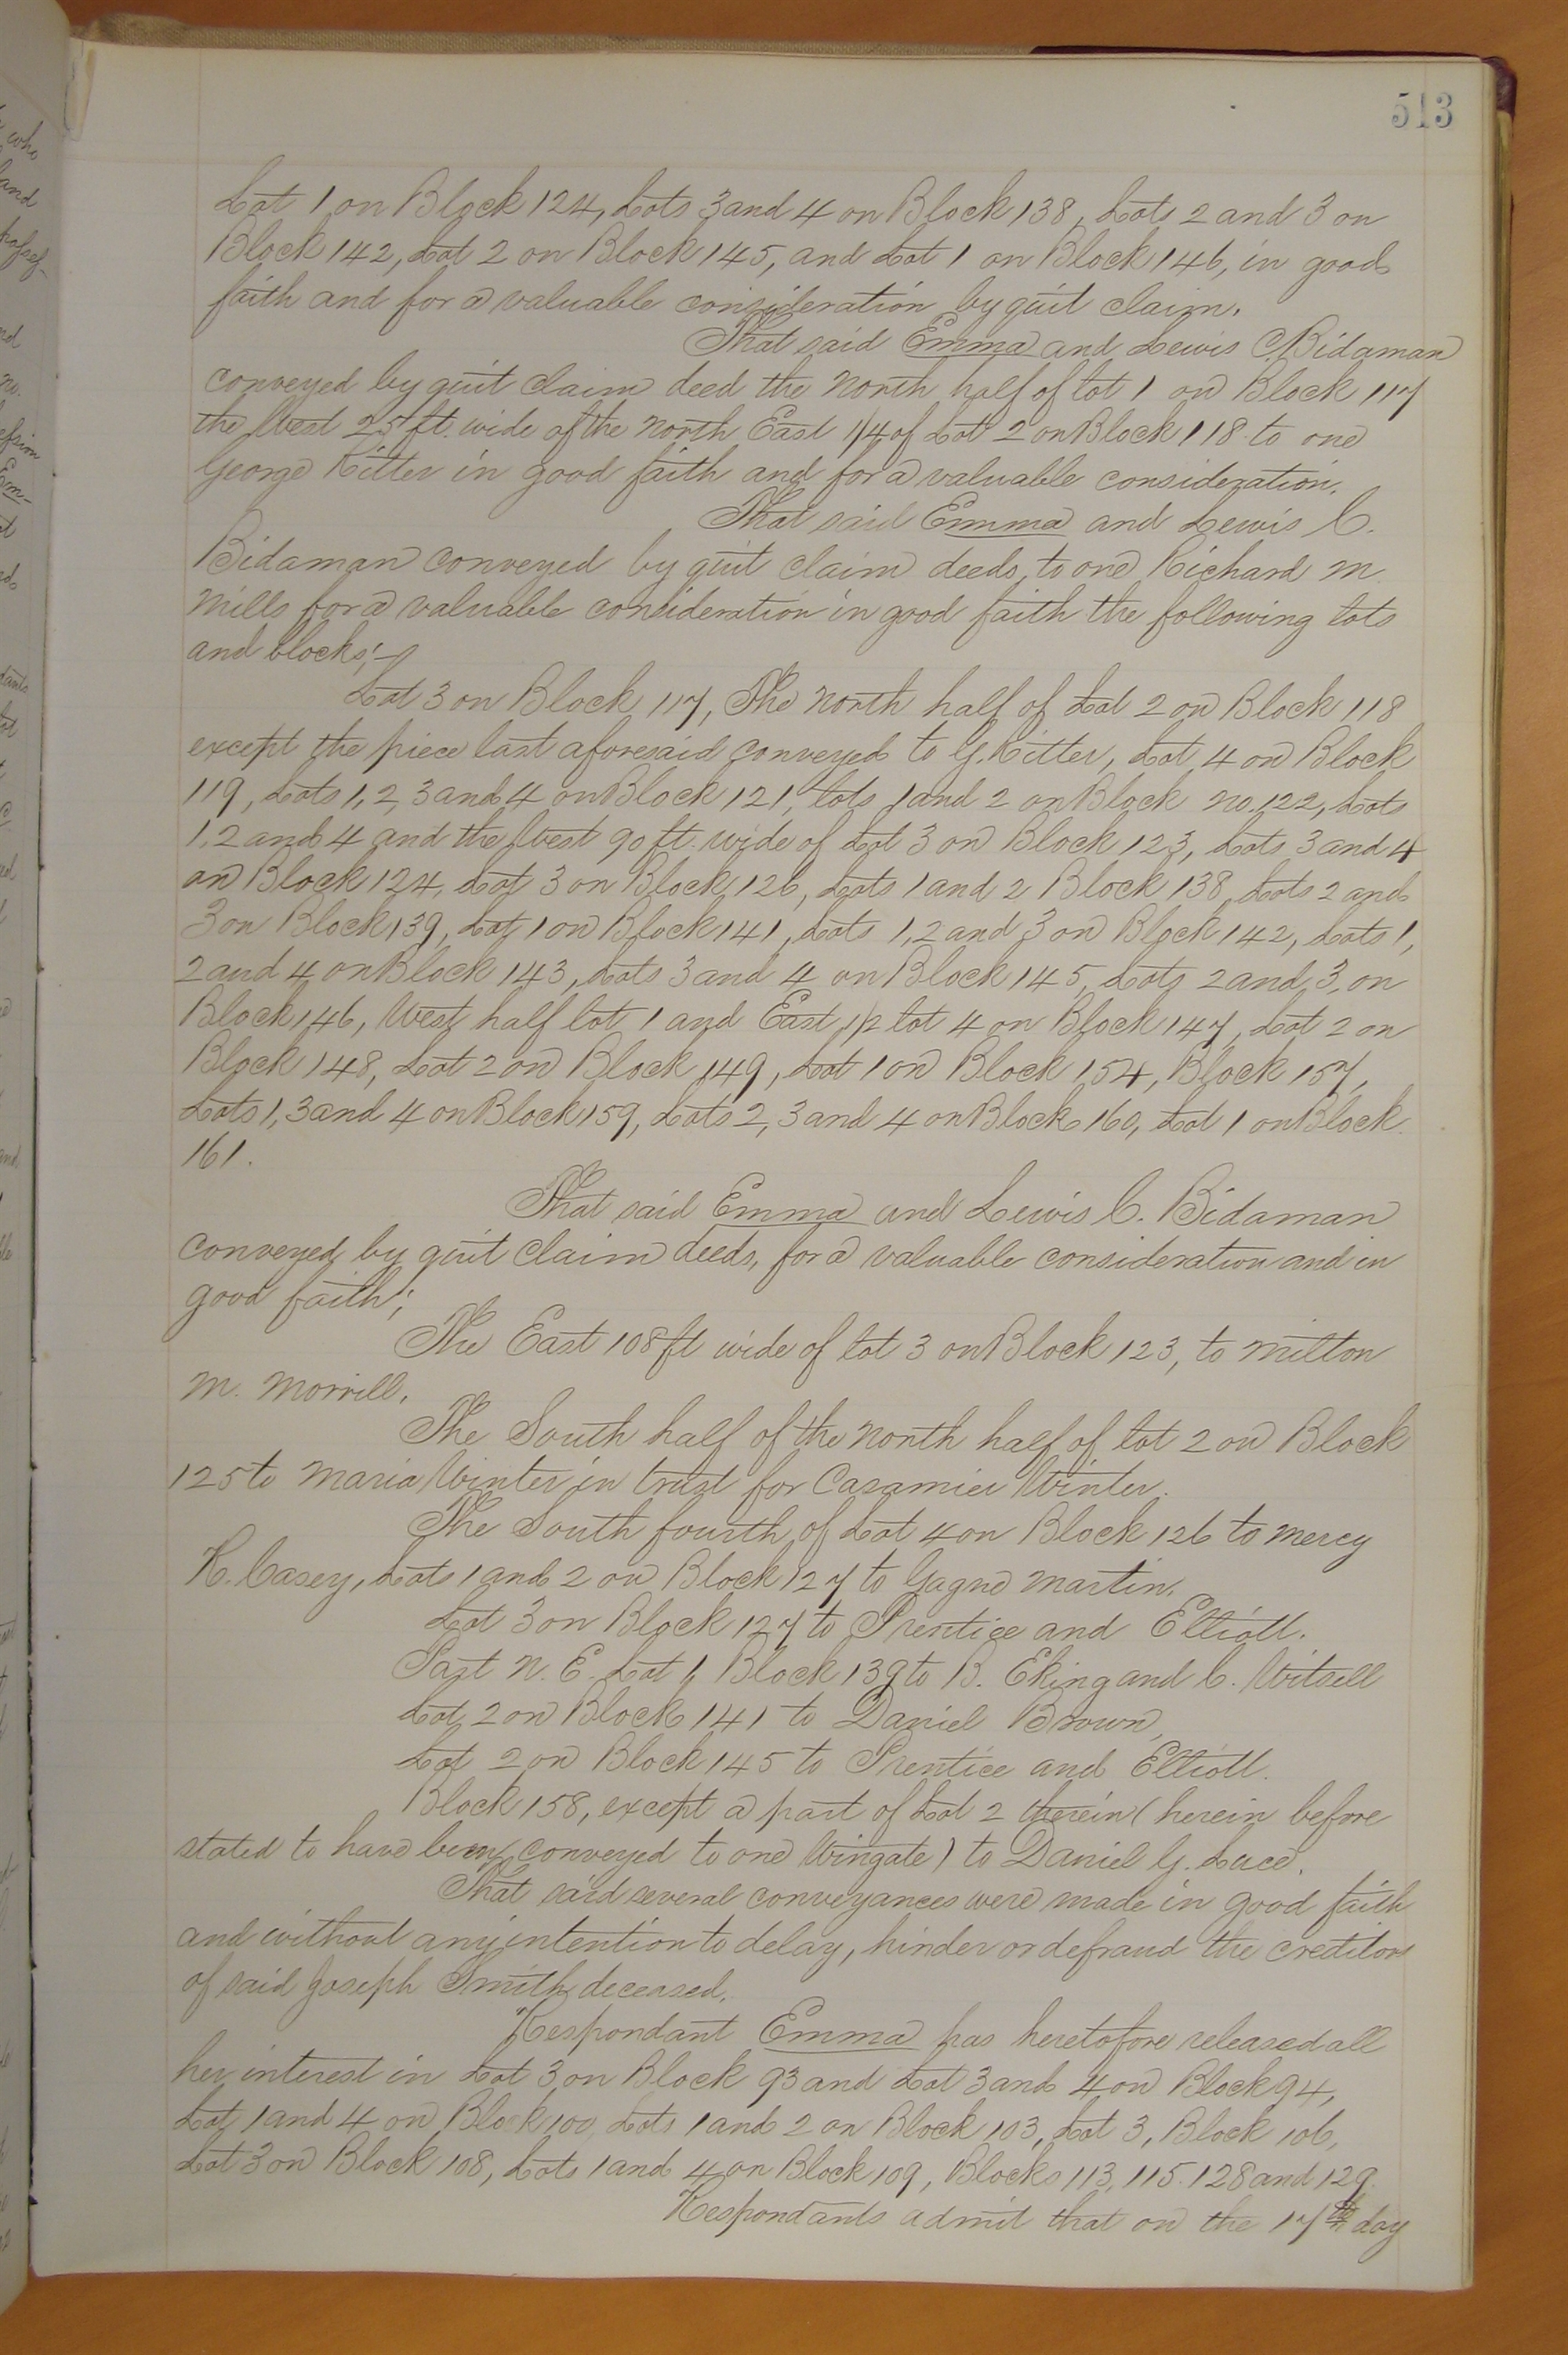 513
Lot 1 on Block 124, Lots 3 and 4 on Block 138, Lots 2 and 3 on
Block 142, Lot 2 on Block 145, and Lot 1 on Block 146, in good
faith and for a valuable consideration by quit claim.
That said Emma and Lewis C. Bidaman
conveyed by quit claim deed the North half of lot 1 on Block 117
the West 25 ft. wide of the North East 1/4 of Lot 2 on Block 118 to one
George Ritter in good faith and for a valuable consideration.
That said Emma and Lewis C.
Bidaman conveyed by quit claim deeds, to one Richard M.
Mills for a valuable consideration in good faith the following lots
and blocks;-
Lot 3 on Block 117, The North half of Lot 2 on Block 118
except the piece last aforesaid conveyed to G. Ritter, Lot 4 on Block
119, Lots 1, 2, 3 and 4 on Block 121, lots 1 and 2 on Block No. 122, Lots
1, 2 and 4 and the West 90 ft. wide of Lot 3 on Block 123, Lots 3 and 4
on Block 124, Lot 3 on Block 126, Lots 1 and 2 Block 138, Lots 2 and
3 on Block 139, Lot 1 on Block 141, Lots 1, 2 and 3 on Block 142, Lots 1,
2 and 4 on Block 143, Lots 3 and 4 on Block 145, Lots 2 and 3, on
Block 146, West half lot 1 and East 1/2 lot 4 on Block 147, Lot 2 on
Block 148, Lot 2 on Block 149, Lot 1 on Block 154, Block 157,
Lots 1, 3 and 4 on Block 159, Lots 2, 3 and 4 on Block 160, Lot 1 on Block
161.
That said Emma and Lewis C. Bidaman
conveyed by quit claim deeds, for a valuable consideration and in
good faith;
The East 108 ft wide of lot 3 on Block 123, to Milton
M. Morrill.
The South half of the North half of lot 2 on Block
125 to Maria Winter in trust for Casamier Winter.
The South fourth of Lot 4 on Block 126 to Mercy
R. Casey, Lots 1 and 2 on Block 127 to Gagne Martin.
Lot 3 on Block 127 to Prentice and Elliott.
Part N. E. Lot 1, Block 139 to B. Eking and C. Witsell
Lot 2 on Block 141 to Daniel Brown,
Lot 2 on Block 145 to Prentice and Elliott.
Block 158, except a part of Lot 2 therein (herein before
stated to have been conveyed to one Wingate) to Daniel G. Luce.
That said several conveyances were made in good faith
and without any intention to delay, hinder or defraud the creditors
of said Joseph Smith deceased.
Respondant Emma has heretofore released all
her interest in Lot 3 on Block 93 and Lot 3 and 4 on Block 94,
Lot 1 and 4 on Block 100, Lots 1 and 2 on Block 103, Lot 3, Block 106,
Lot 3 on Block 108, Lots 1 and 4 on Block 109, Blocks 113, 115. 128 and 129.
Respondants admit that on the 17th day